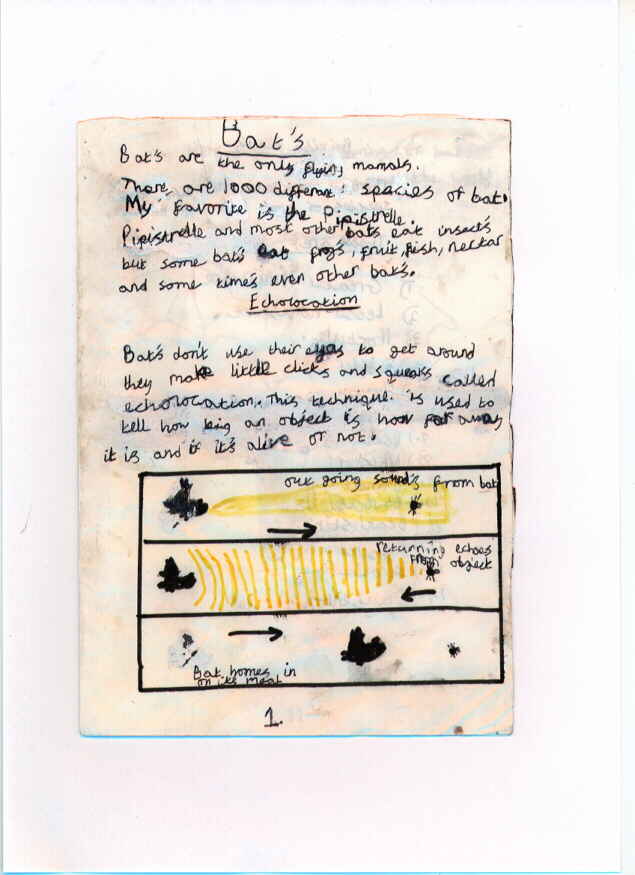 Bat's
Bat's are the only flying mamals.
There are 1000 different species of bat.
My favorite is the Pipistrelle.
Pipistrelle and most other bats eat insect's
but some bat's eat frog's, fruit, fish, nectar
and some time's even other bat's.
Echolocation
Bat's don't use their eyes to get around
they make little clicks and squeaks called
echolocation. This technique is used to
tell how big an object is how far away
it is and if it's alive or not.
out going sound's from bat
returning echoes
from object
Bat homes in
on its meal
1